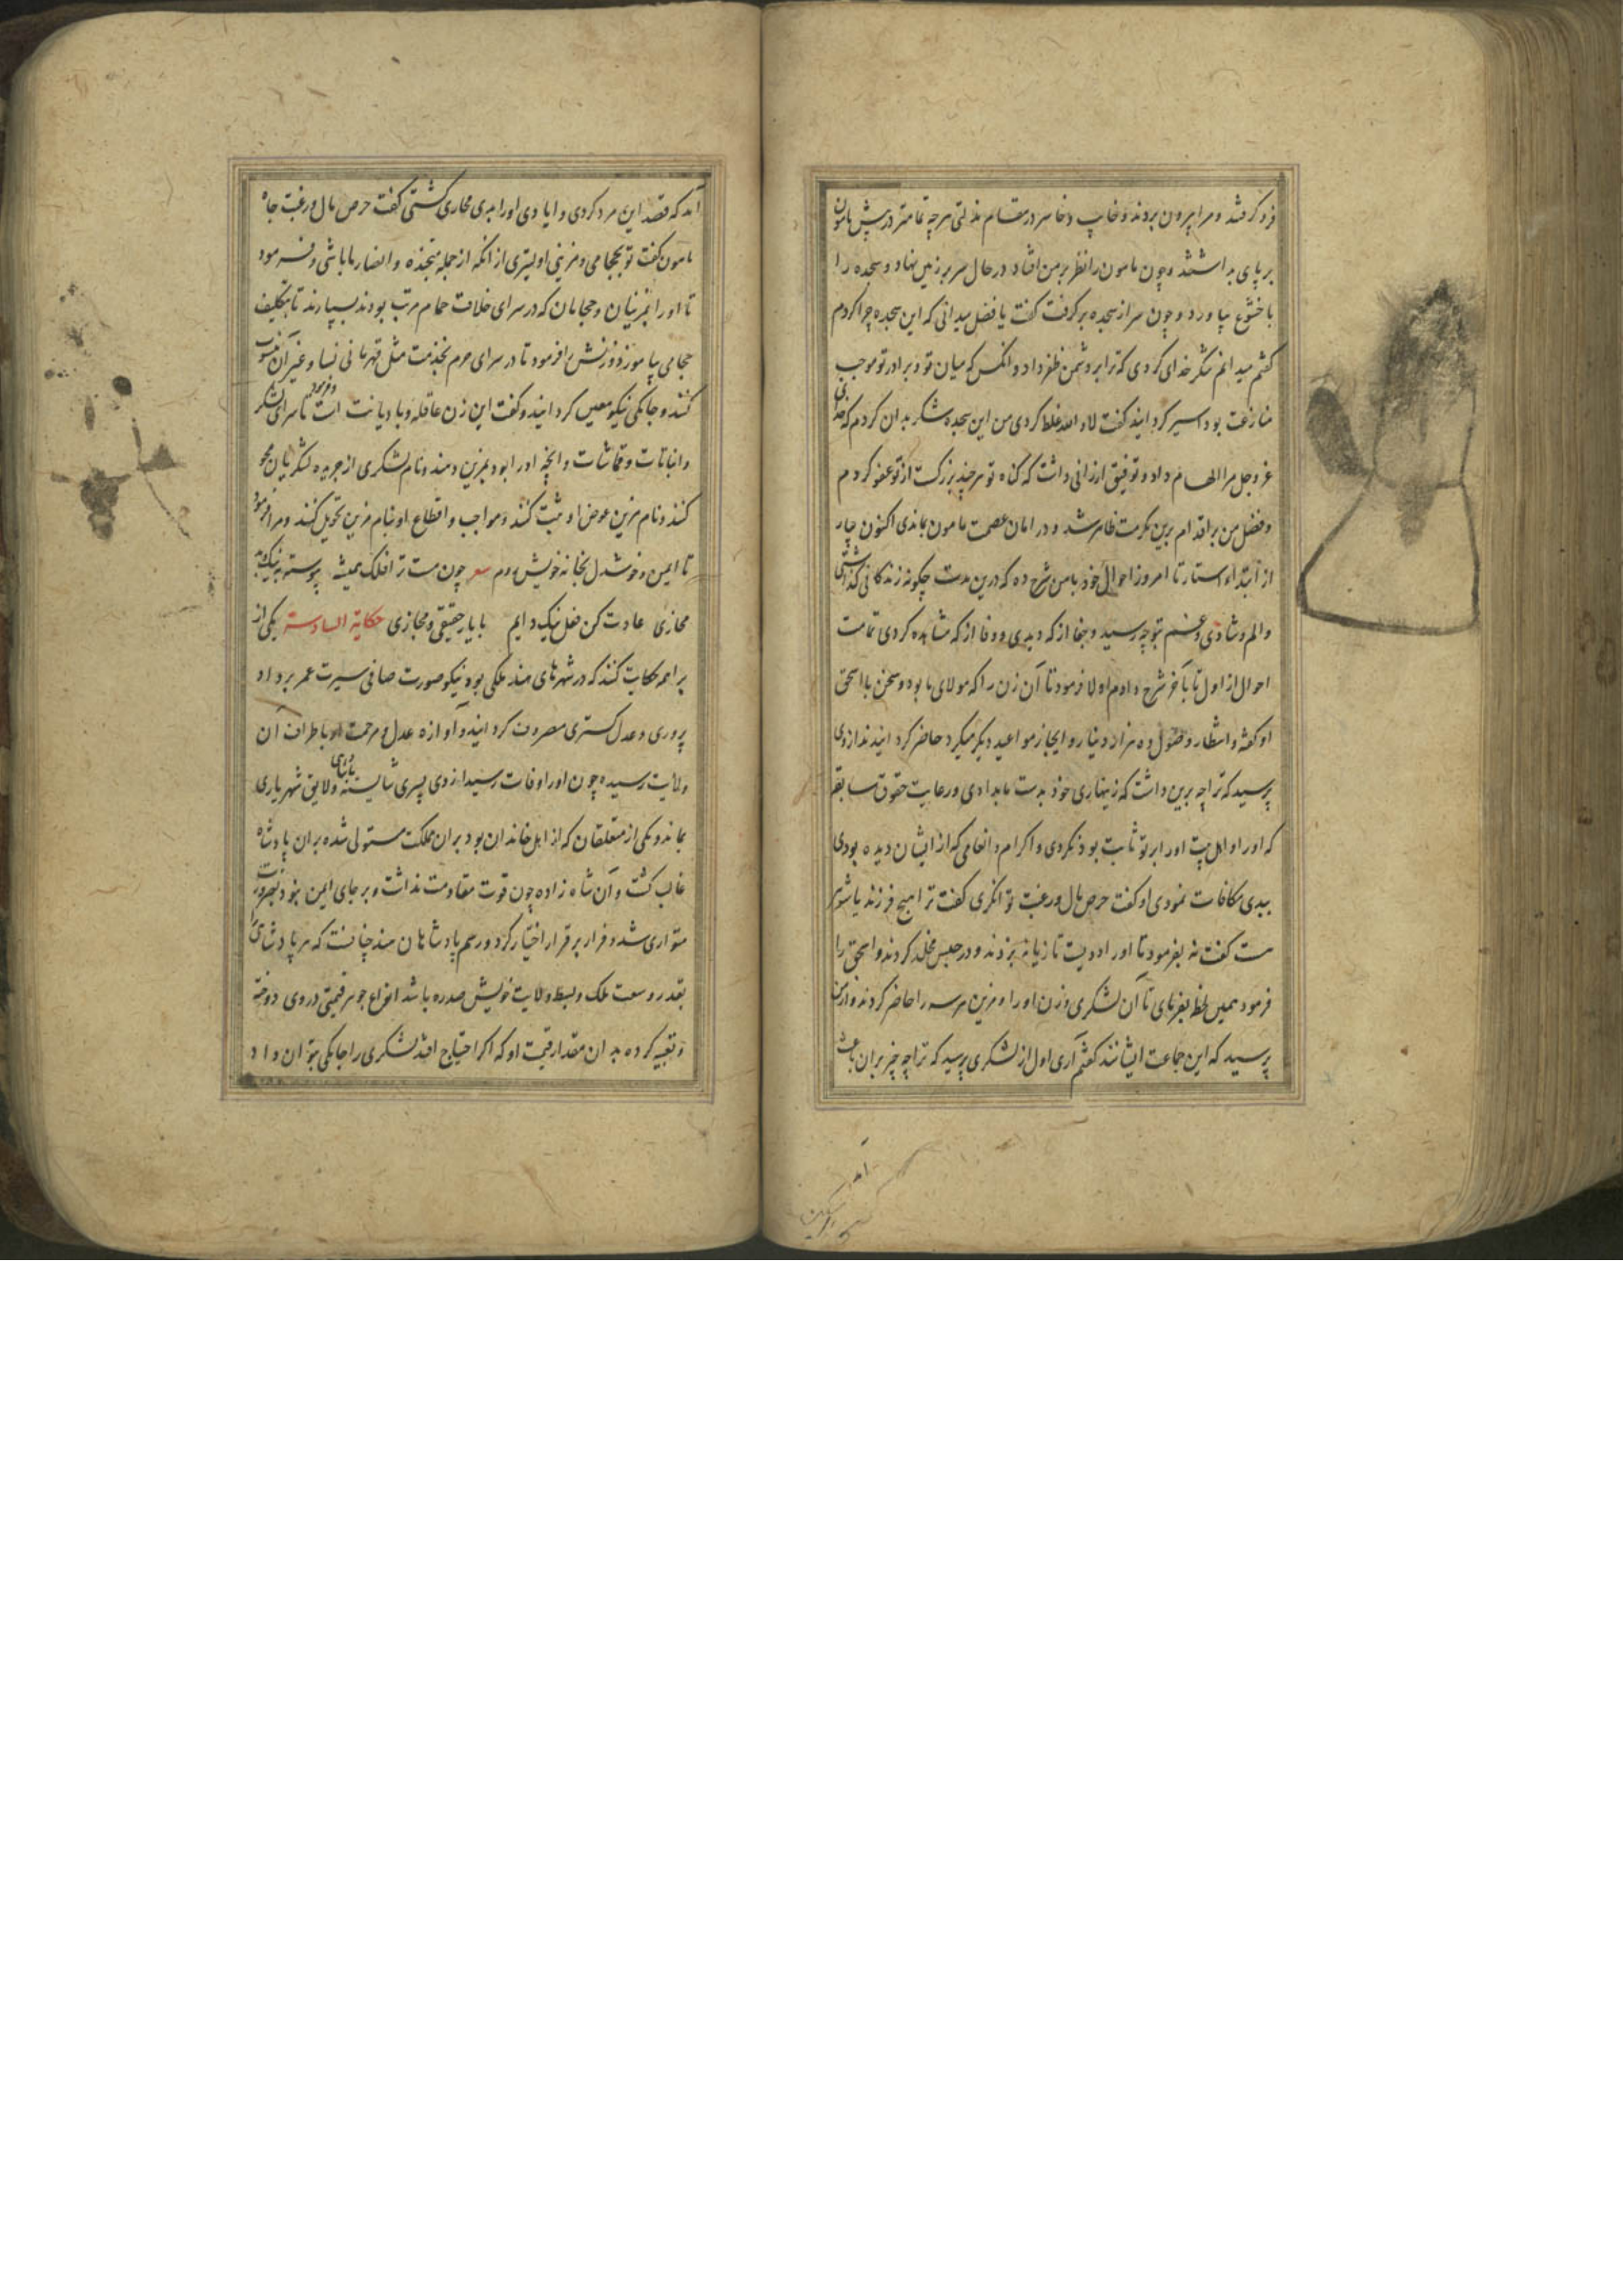 فرو کرفتند و مرا بیرون بردند و خایب و خاسر در مقام مذلتی هرچه تمامتر در پیش مامون
بر پای بداشتند و چون مامون را نظر بر من افتاد در حال سر بر زمین نهاد و سجده را
با خشوع بیاورد و چون سر از سجده برکرفت کفت یا فضل میدانی که این سجده چرا کردم
کفتم میدانم شکر خدای کردی که ترا بر دشمن ظفر داد و انکس که میان تو و برادر تو موجب
منازعت بود اسیر کردانید کفت لا والله غلط کردی من این سجده شکر بدان کردم که خدای
عز و جل مرا الهام داد و توفیق ارزانی داشت که کناه تو هرچند بزرکست از تو عفو کردم
و فضل من بر اقدام برین مکرمت ظاهر شد و در امان عصمت مامون بماندی اکنون
از ابتداء استتار تا امروز احوال خوذ با من شرح ده که درین مدت چکونه زندکانی کذاشتی
والم و شادی و غم بتو چه رسید و جفا از که دیدی و وفا از که مشاهده کردی تمامت
احوال از اول تا بآخر شرح دادم اولا فرمود تا آن زن را که مولای ما بود و سخن با اسحق
او کفته و انتظار وصول ده هزار دینار و ایجاز مواعید دیکر میکرد حاضر کردانیدند ازوی
پرسید که ترا چه برین داشت که زینهاری خوذ بدست ما بدادی و رعایت حقوق سابقه
که او را و اهل بیت او را بر تو ثابت بوذ نکردی و اکرام و انعامی که از ایشان دیده بودی
ببدی مکافات نمودی او کفت حرص مال و رغبت توانکری کفت ترا هیچ فرزند یا شوهر
هست کفت نه بفرمود تا او را دویست تازیانه بزدند و در حبس مخلد کردند و اسحق را
فرمود همین لحظه بفرمای تا آن لشکری و زن او را و مزین هرسه را حاضر کردند و از من
پرسید که این جماعت ایشانند کفتم آری اول از لشکری پرسید که ترا چه چیز بران باعث
آمد
آمد که قصد این مرد کردی و ایادی او را ببدی مجازی کشتی کفت حرص مال و رغبت جاه
مامون کفت تو بحجامی و مزینی اولیتری از انکه از جمله متجنده و انصار ما باشی و فرمود
تا او را بمزینان و حجامان که در سرای خلافت حمام مرتب بودند بسپارند تا بتکلیف
حجامی بیاموزذ و زنش را فرمود تا در سرای حرم بخدمت مثل قهرمانی نسا و غیر آن منسوب
کنند و جامکی نیکو معین کردانید و کفت این زن عاقله و با دیانت است و فرمود تا سرای لشکر
و اثاثات و قماشات و آنچه او را بود بمزین دهند و نام لشکری از جریده لشکریان محو
کنند و نام مزین عوض او ثبت کنند و مواجب و اقطاع او بنام مزین تحویل کنند و مرا فرمود
تا ایمن و خوشدل بخانه خویش روم شعر چون هست ترا فلک همیشه پیوسته به نیک و بد
مجازی عادت کن فعل نیک دایم با یار حقیقی و مجازی حکایة السادسة یکی از
براهمه حکایت کند که در شهرهای هند ملکی بود نیکو صورت صافی سیرت عمر بر داد
پروری و عدل کستری مصروف کردانیده و آوازه عدل و مرحمت او باطراف آن
ولایت رسیده چون او را وفات رسید از وی پسری شایسته پادشاهی و لایق شهریاری
بماند و یکی از متعلقان که از اهل خاندان بود بران مملکت مستولی شده بران پادشاه
غالب کشت و آن شاه زاده چون قوت مقاومت نداشت و بر جای ایمن نبوذ بضرورت
متواری شد و فرار بر قرار اختیار کرد و رسم پادشاهان هند چنانست که هر پادشاهی
بقدر وسعت ملک و بسط ولایت خویش صدره باشد انواع جوهر قیمتی در وی دوخته
و تعبیه کرده بدان مقدار قیمت او که اکر احتیاج افتد لشکری را جامکی بتوان داد